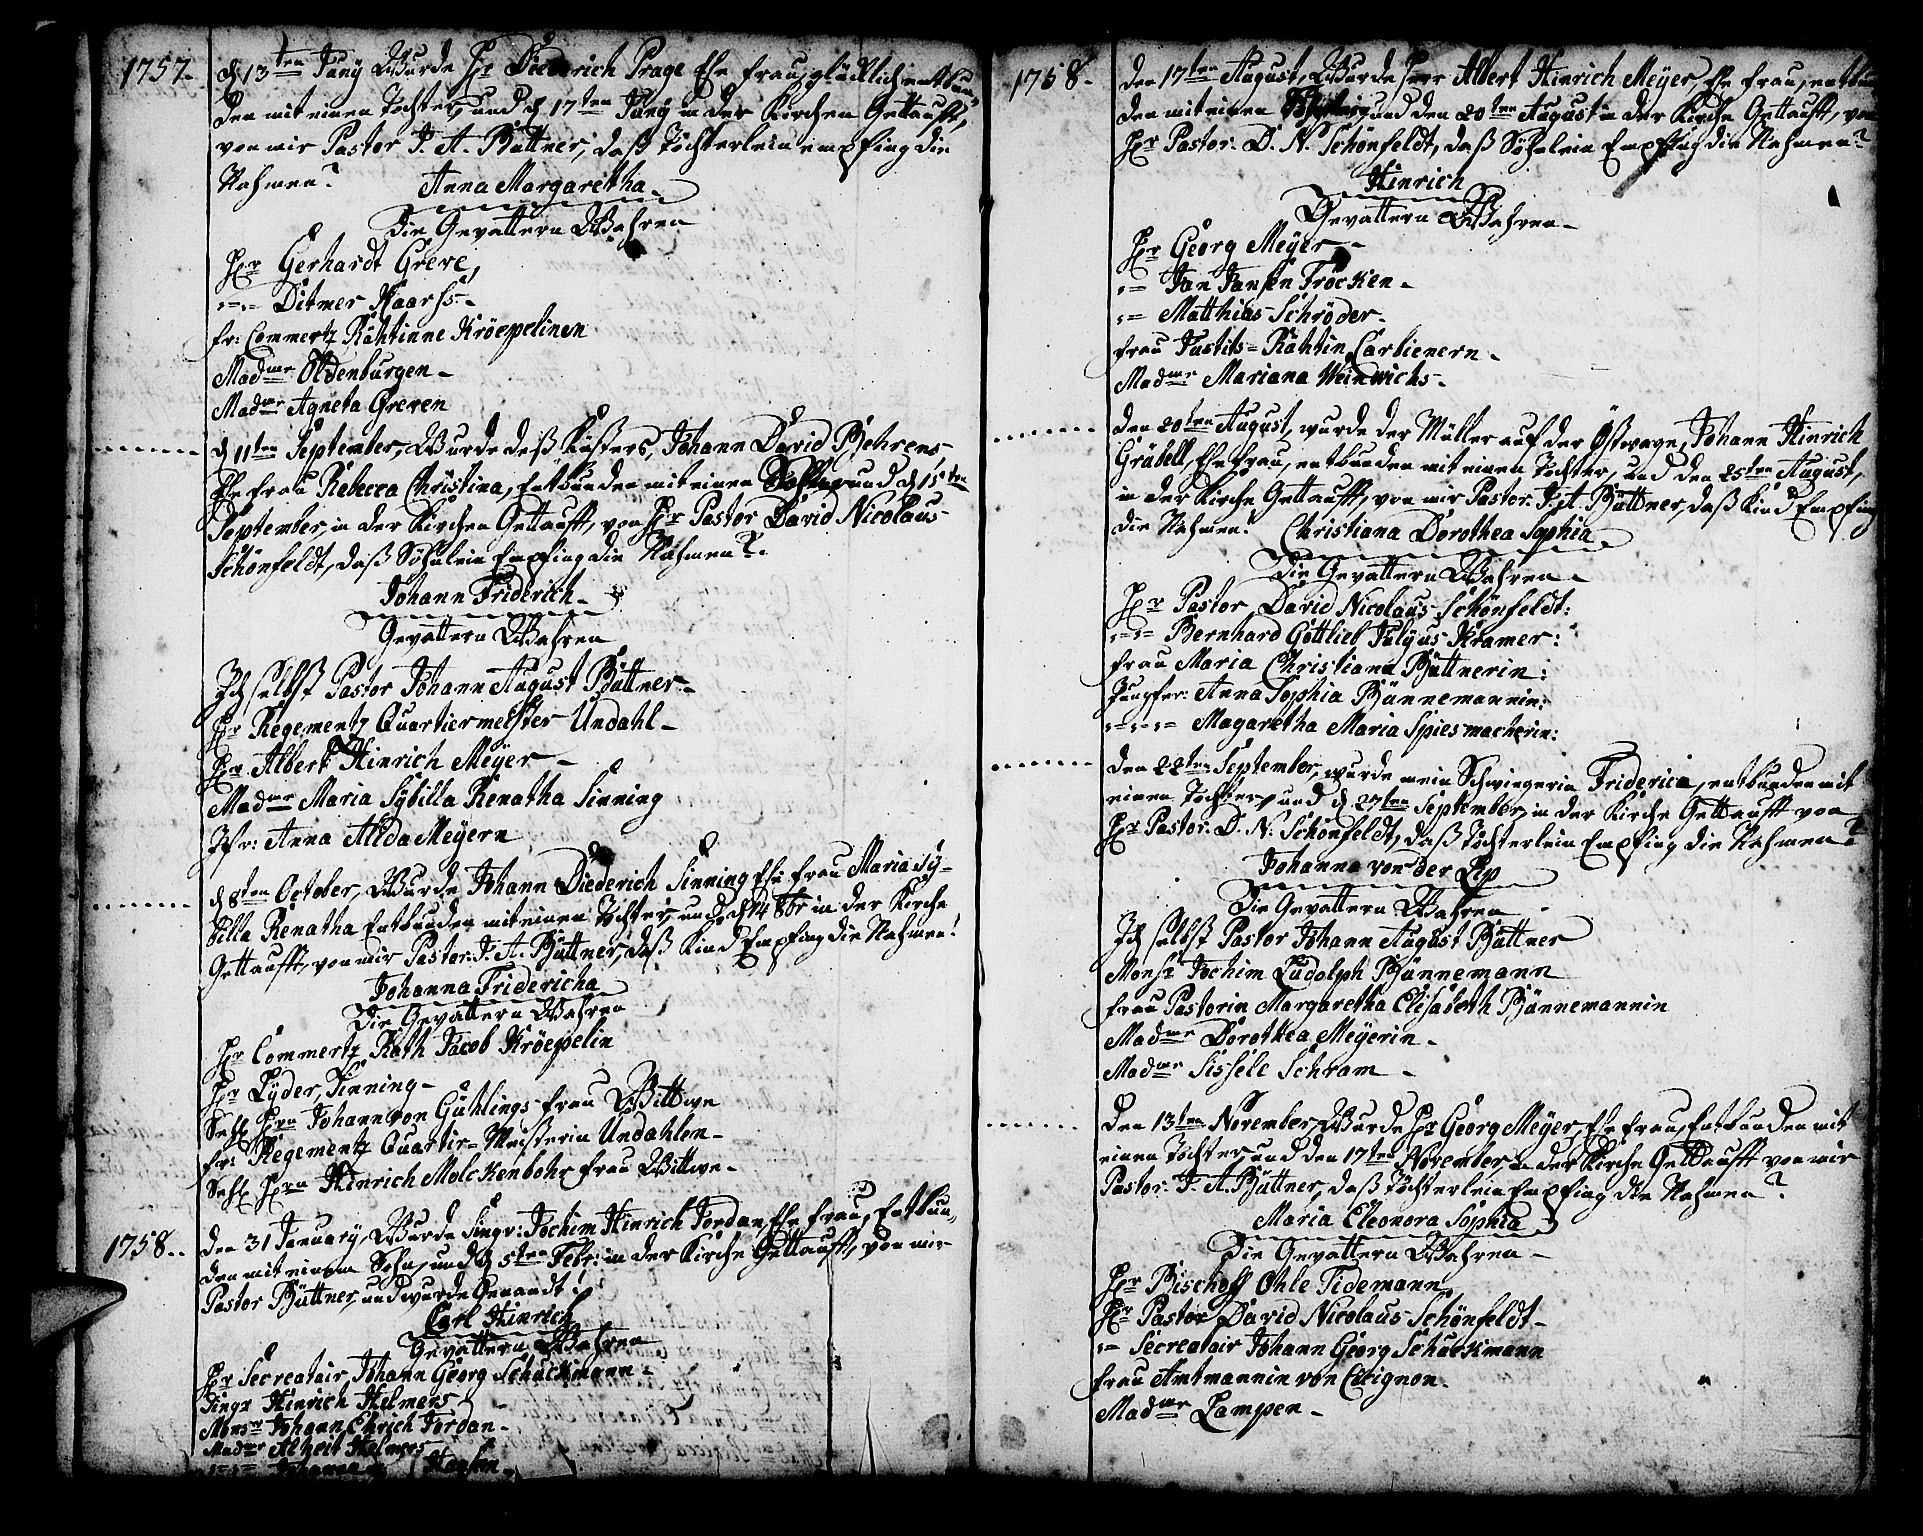 1757.
d 13ten Juny Wurde Hr Diederich Prage Ehe frau, glücklich entbun-
den mit einen Tochter, und d 17ten Juny in der Kirchen Gettaufft,
von mir Pastor J. A. Büttner, daß Töchterlein empfing die
Nahmen? Anna Margaretha.
Die Gevattern Wahren
Hr Gerhardt Greve,
---- Ditmer Kaarss-
fr: Commertz Rähtinne Kröepelinen
Madme Oldenburgen-
Madme Agneta Greven
d 11ten September, Wurde deß Küsters, Johann David Behrens,
Ehe frau Rebecca Christina, Entbunden mit einen Sohn und d 15ten
September, in der Kirchen Gettaufft, von Hr Pastor David Nicolaus
Schönfeldt, daß Söhnlein Empfing die Nahmen?.
Johann Friderich-
Gevattern Wahren
Ich selbst Pastor Johann August Büttner-
Hr Regementz Quartiermeister Undahl-
Hr Albert Hinrich Meÿer-
Madme Maria Sÿbilla Renatha Sinning
Jfr: Anna Alida Meÿern
d 8ten October, Wurde Johann Diederich Sinning Ehe frau Maria Sÿ-
billa Renatha Entbunden mit einen Tochter, und d 14 8br in der Kirche
Gettaufft, von mir Pastor: J. A. Büttner, daß Kind Empfing die Nahmen!
Johanna Fridericha
Die Gevattern Wahren
Hr Commertz Rath Jacob Kröepelin
Hr Lÿder, Sinning-
Sehl Hrn Johann von Gühlings frau Wittwe
fr: Regementz Quartir= Meisterin Undahlen-
Sehl Hrn Hinrich Molckenbohr frau Wittwe-
1758..
den 31 January, Wurde Singr: Jochim Hinrich Jordan, Ehe frau, Entbun-
den mit einem Sohn, und d 5ten Febr: in der Kirche Gettaufft, von mir
Pastor Büttner, und wurde Genandt!
Carl Hinrich
Gevattern Wahren
Hr Secreatair, Johann Georg Schuckmann-
Singr Hinrich Helmers
Monsr Johann Ehrich Jordan-
Madme Alheit Helmers
---- Johanna
1758.
den 17ten August, Wurde Herr Albert Hinrich Meÿer, Ehe frau, entbun
den mit einen und den 20ten August in der Kirche Gettaufft, von
Hr Pastor. D. N. Schönfeldt, daß Söhnlein Empfing die Nahmen?
Hinrich
Gevattern Wahren-
Hr Georg Meÿer-
-- Jan Jansen Trocken-
-- Matthias Schröder.
frau Justits=Rähtin, Carbienern-
Madme Mariana Weinwichs-
den 20ten August, wurde der Müller auf der Østwage, Johann Hinrich
Gräbell, Ehe frau, entbunden mit einen Tochter, und den 25ten August,
in der Kirche Gettaufft, von mir Pastor. J. A. Büttner, daß Kind Empfing
die Nahmen! Christiana Dorothea Sophia
Die Gevattern Wahren-
Hr Pastor, David Nicolaus Schönfeldt:
---- Bernhard Gottlieb Julÿus Kramer:
frau Maria Christiana Büttnerin:
Jungfer: Anna Sophia Bünnemannin:
------ Magaretha Maria Spiesmacherin:
den 22ten September, wurde mein Schwiegerin Friderica, entbunden mit
einen Tochter, und d 27ten September, in der Kirche Gettaufft von
Hr Pastor. D. N: Schönfeldt, daß Töchterlein Empfing die Nahmen?
Johanna von der Lip
Die Gevattern Wahren
Ich selbst Pastor Johann August Büttner
Monsr Jochim Ludolph Bünnemann
frau Pastorin Margaretha Elisabeth Bünnemannin
Madme Dorothea Meÿerin-
Madme Sissele Schram-
den 13ten November, Wurde Hr Georg Meÿer, Ehe frau, Entbunden mit
einen Tochter, und den 17ten November, in der Kirche Gettaufft von mir
Pastor: J. A. Büttner, daß Töchterlein Empfing die Nahmen?
Maria Eleonora Sophia
Die Gevattern Wahren-
Hr Bischoff Ohle Tidemann,
Hr Pastor David Nicolaus Schönfeldt-
-- Secreatair Johann Georg Schuckmann
frau Amtmannin von Cutignon.
Madme Lampen-